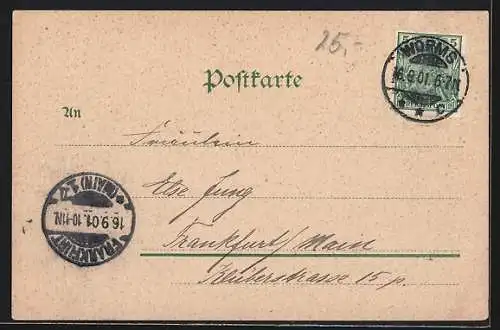 25,-
WORMS
16.9.01. 6-7N.
* * c
5 5
Postkarte
An
Fräulein
Else Jung
Frankfurt/Main
Klüberstrasse 15 p.
FRANKFURT
16.9.01. 10-11N.
* (MAIN) 1